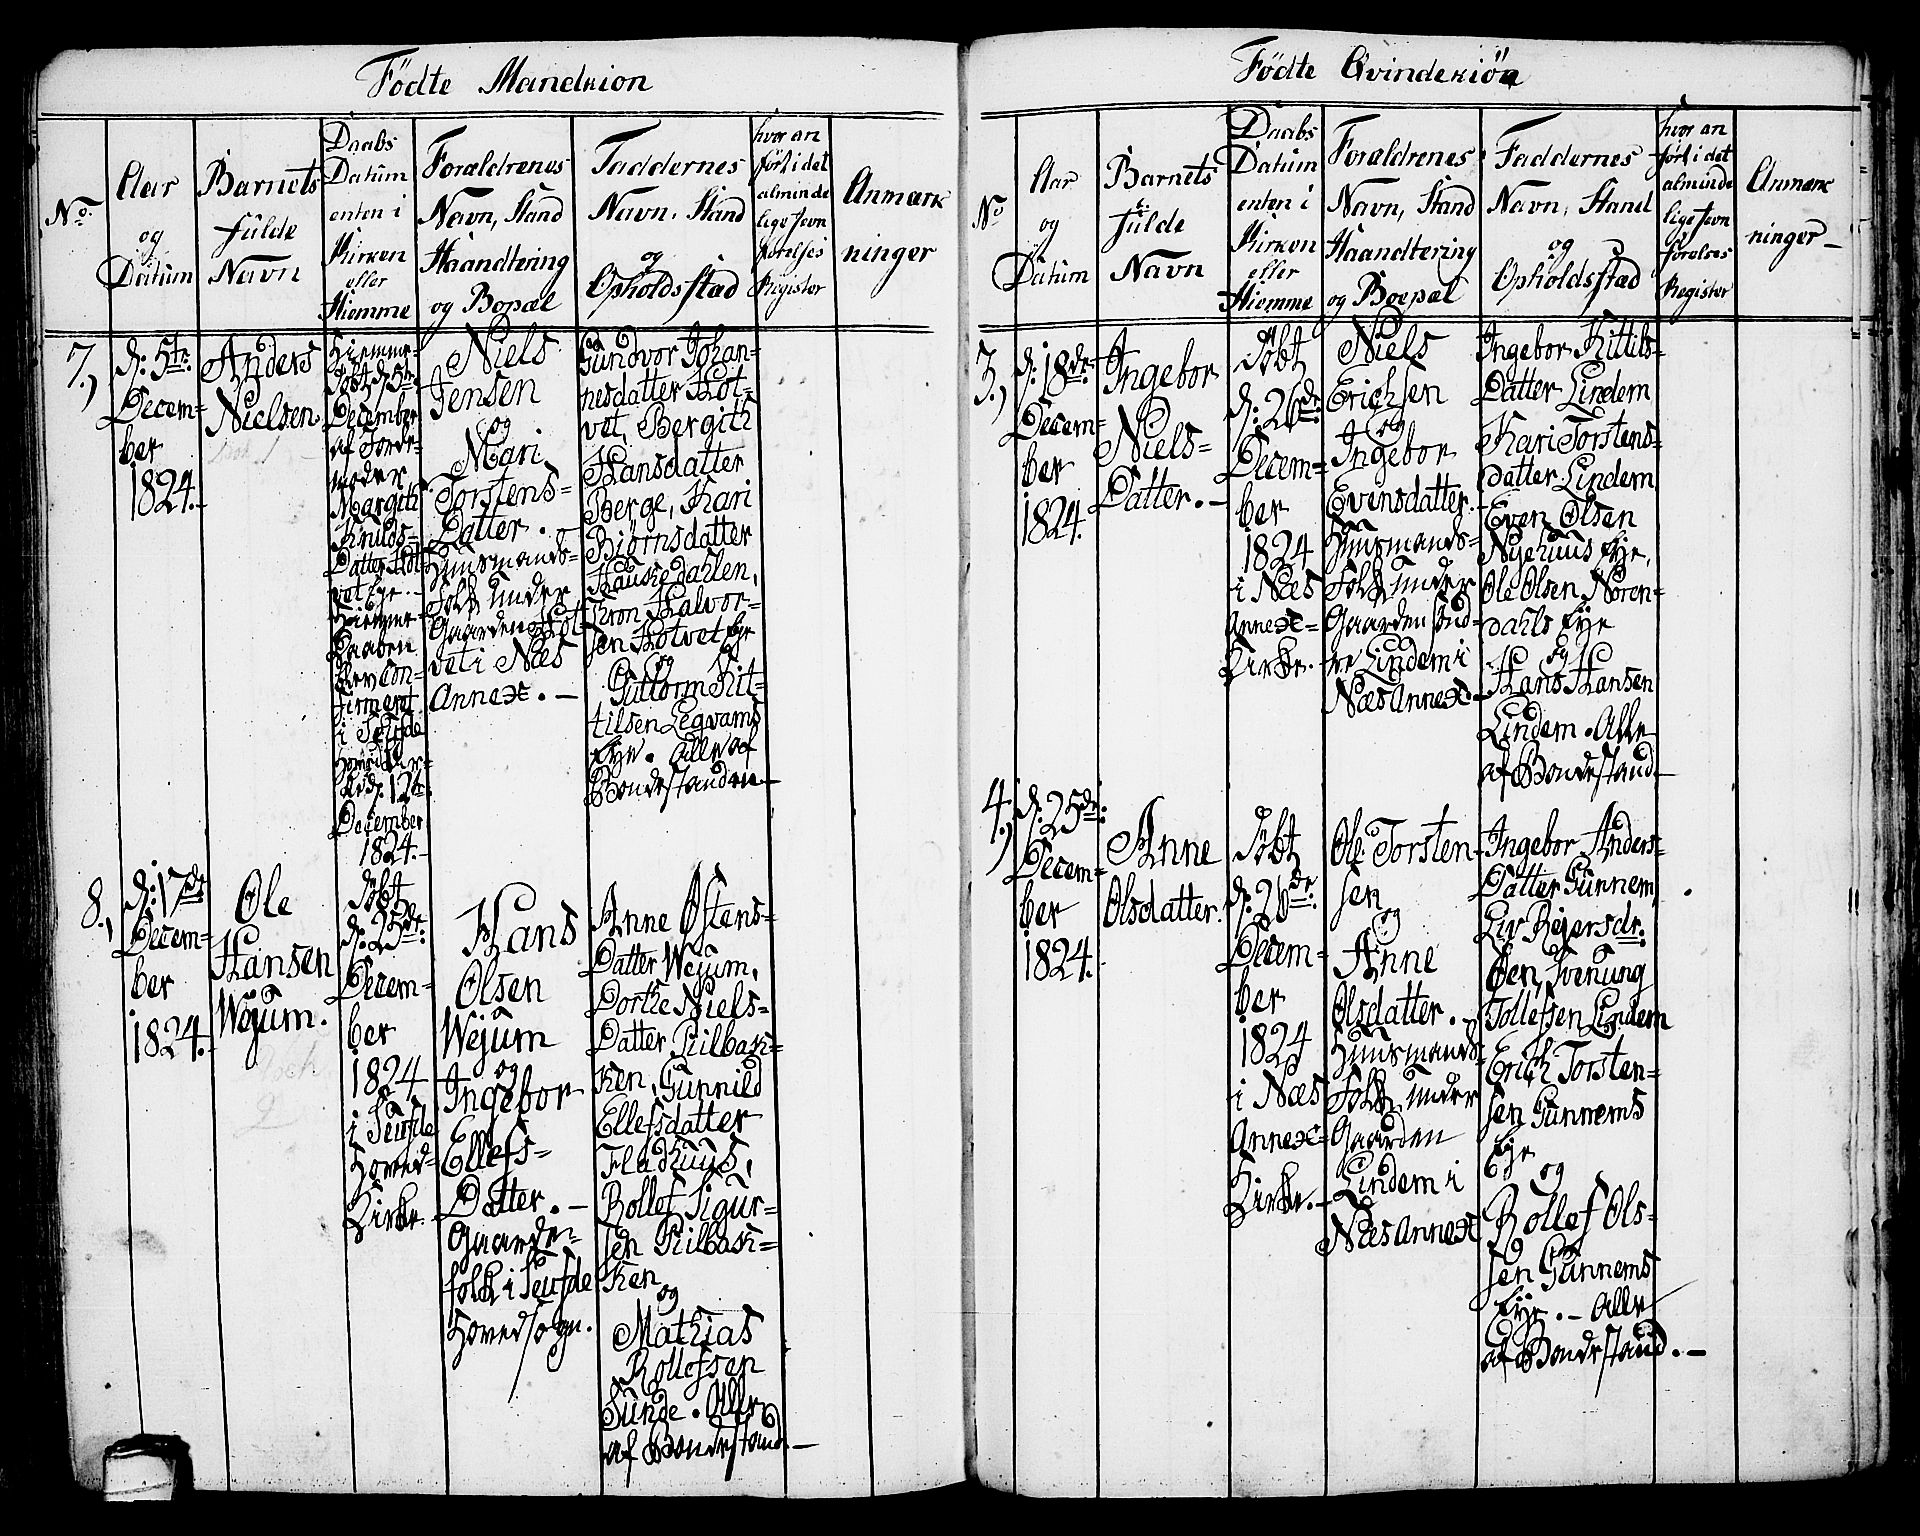 Födte Mandkion
No.
Aar
og
Datum
Barnets
fulde
Navn
Daabs
Datum
enten i
Kirken
eller
Hiemme
Forældrenes
Navn, Stand
Haandtering
og Bopæl
Faddernes
Navn, Stand
og
Opholdsstad
hvor an
ført i det
alminde
lige Jevn
førelses
Register
Anmærk
ninger
7.,
d: 5te
Decem=
ber
1824.
Anders
Nielsen.
Hiemme=
døbt d. 5te
December
af Jorde=
moder
Margith
Knuds=
Datter Kot
vet Eje.
Hiemme=
Daaben
blev Con=
firmeret
i Seufde
Hoved
d. 12te
December
1824.
Niels
Jensen
og
Mari
Torstens=
Datter.
Huusmands=
Folk under
Gaarden Kot
vet i Næs
Annex.
Gundvor Johan=
nesdatter Kot=
vet, Bergith
Hansdatter
Berge, Kari
Bjørnsdatter
Haukedahlen,
Tron Halvor=
sen Kotvet Eje
og
Guttorm Kit=
tilsen Legvams
Eye. Alle af
Bondestanden
8.,
d: 17de
Decem=
ber
1824.
Ole
Hansen
Wejum.
Døbt
d. 25de:
Decem=
ber
1824
i Seufde
Hoved=
Kirke.
Hans
Olsen
Wejum
og
Ingebor
Ellefs=
Datter.
Gaarde=
folk i Seufde
Hovedsogn.
Anne Østens=
Datter Wejum,
Dorthe Niels=
Datter Kilbak=
ken, Gunnild
Ellefsdatter
Fladhuus,
Rollef Sigur=
sen Kilbak=
ken
og
Mathias
Rollefsen
Sunde. Alle
af Bondestand
Födte Qvindekiön
No
Aar
og
Datum
Barnets
fulde
Navn
Daabs
Datum
enten i
Kirken
eller
Hiemme
Forældrenes
Navn, Stand
Haandtering
og Boepæl
Faddernes
Navn, Stand
og
Opholdsstad
hvor an
ført i det
alminde
lige Jevn
førelses
Register
Anmærk
ninger
3.,
d: 18de
Decem=
ber
1824.
Ingebor
Niels=
Datter.
Døbt
d. 26de
Decem=
ber
1824
i Næs
Annex=
Kirke.
Niels
Erichsen
og
Ingebor
Evensdatter.
Huusmands=
Folk under
Gaarden Sønd=
re Lindem i
Næs Annex
Ingebor Kittils=
Datter Lindem
Kari Torstens=
datter Lindem
Even Olsen
Nyehuus Eje,
Ole Olsen Noren=
dahls Eye
og
Hans Hansen
Lindem. Alle
af Bondestand.
4.,
d: 25de:
Decem=
ber
1824.
Anne
Olsdatter.
Døbt
d. 26de:
Decem=
ber
1824
i Næs
Annex=
Kirke.
Ole Torsten
sen
og
Anne
Olsdatter.
Huusmands=
Folk under
Gaarden
Lindem i
Næs Annex
Ingebor Anders=
Datter Gunnem,
Liv Rejersdr.
Øen, Svenung
Tollefsen Lindem
Erich Torsten=
sen Gunnems
Eje
og
Rollef Ols=
sen Gunnems
Eye. Alle
af Bondestand.